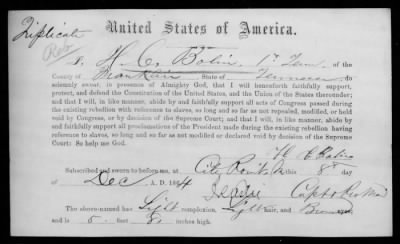 Triplicate
United States of America.
I, H. C. Bolin, 1st Tenn. of the
County of Franklin, State of Tennessee, do
solemnly swear, in presence of Almighty God, that I will henceforth faithfully support,
protect, and defend the Constitution of the United States, and the Union of the States thereunder;
and that I will, in like manner, abide by and faithfully support all acts of Congress passed during
the existing rebellion with reference to slaves, so long and so far as not repealed, modified, or held
void by Congress, or by decision of the Supreme Court; and that I will, in like manner, abide by
and faithfully support all proclamations of the President made during the existing rebellion having
reference to slaves, so long and so far as not modified or declared void by decision of the Supreme
Court: So help me God.
H C Bolin
Subscribed and sworn to before me, at City Point Va this 8th day
of Dec A. D. 1864
Capt
The above-named has Light complexion, Light hair, and
and is 5 feet 8 inches high